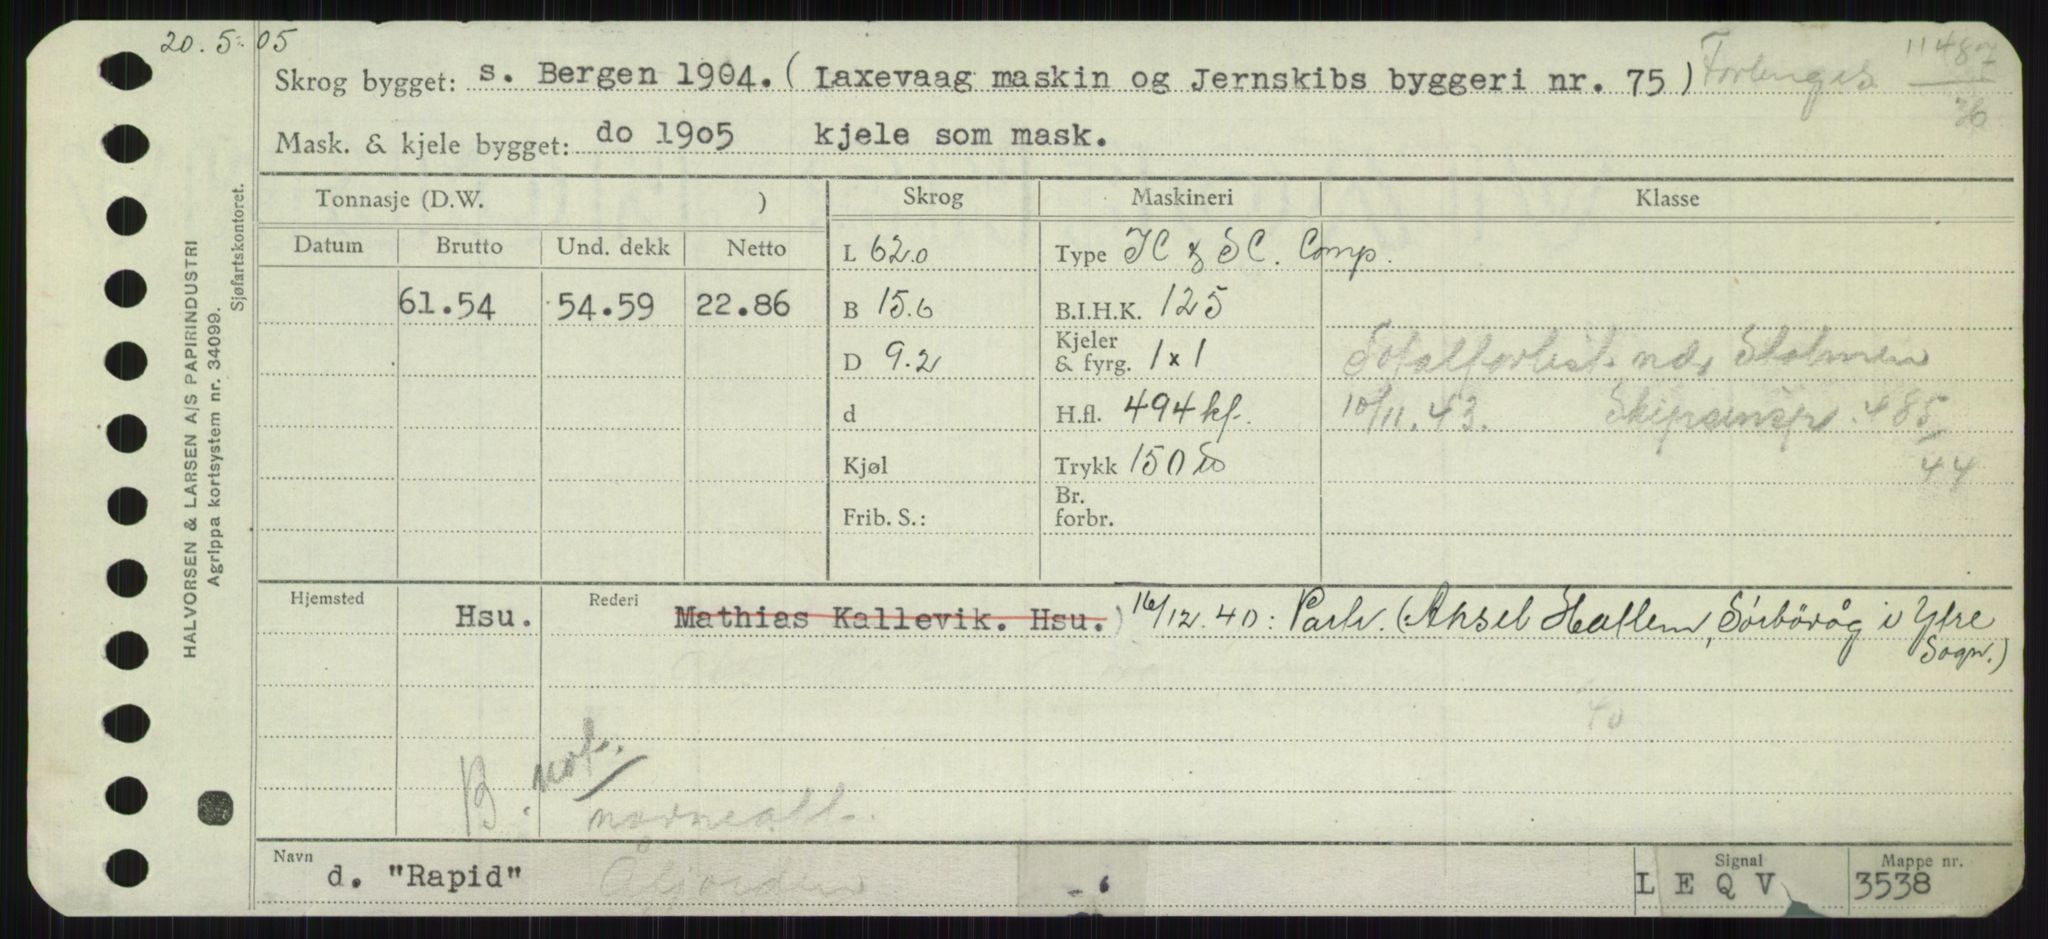 20.5.-05
Skrog bygget: s. Bergen 1904. ( Iaxevaag maskin og Jernskibs byggeri nr. 75 ) Forlenges 11487/36
Mask. & kjele bygget: do 1905 kjele som mask.
Tonnasje (D.W. ) Skrog Maskineri Klasse
Datum Brutto Und. dekk Netto L 62.0 Type IC & SC. Comp.
61.54 54.59 22.86 B 15.6 B.I.H.K. 125
D 9.2 Kjeler & fyrg. 1x1 Totalforlist. ved Stolmen
d H.fl. 494 kf. 10/11.43. 485/44
Kjøl Trykk 150
Frib. S.: Br. forbr.
Hjemsted Hsu. Rederi Mathias Kallevik. Hsu.) 16/12.40: Partr. (Aksel Hallem, Sörbövåg i Ytre Sogn.)
40
B. not.
navneatt.
Navn d. "Rapid" Signal L E Q V Mappe nr. 3538
HALVORSEN & LARSEN A/S PAPIRINDUSTRI
Agrippa kortsystem nr. 34099.
Sjøfartskontoret.